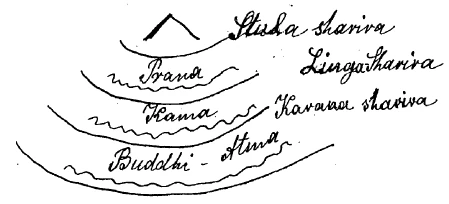 Stula sharira
Prana LingaSharira
Kama Karana sharira
Buddhi - Atma